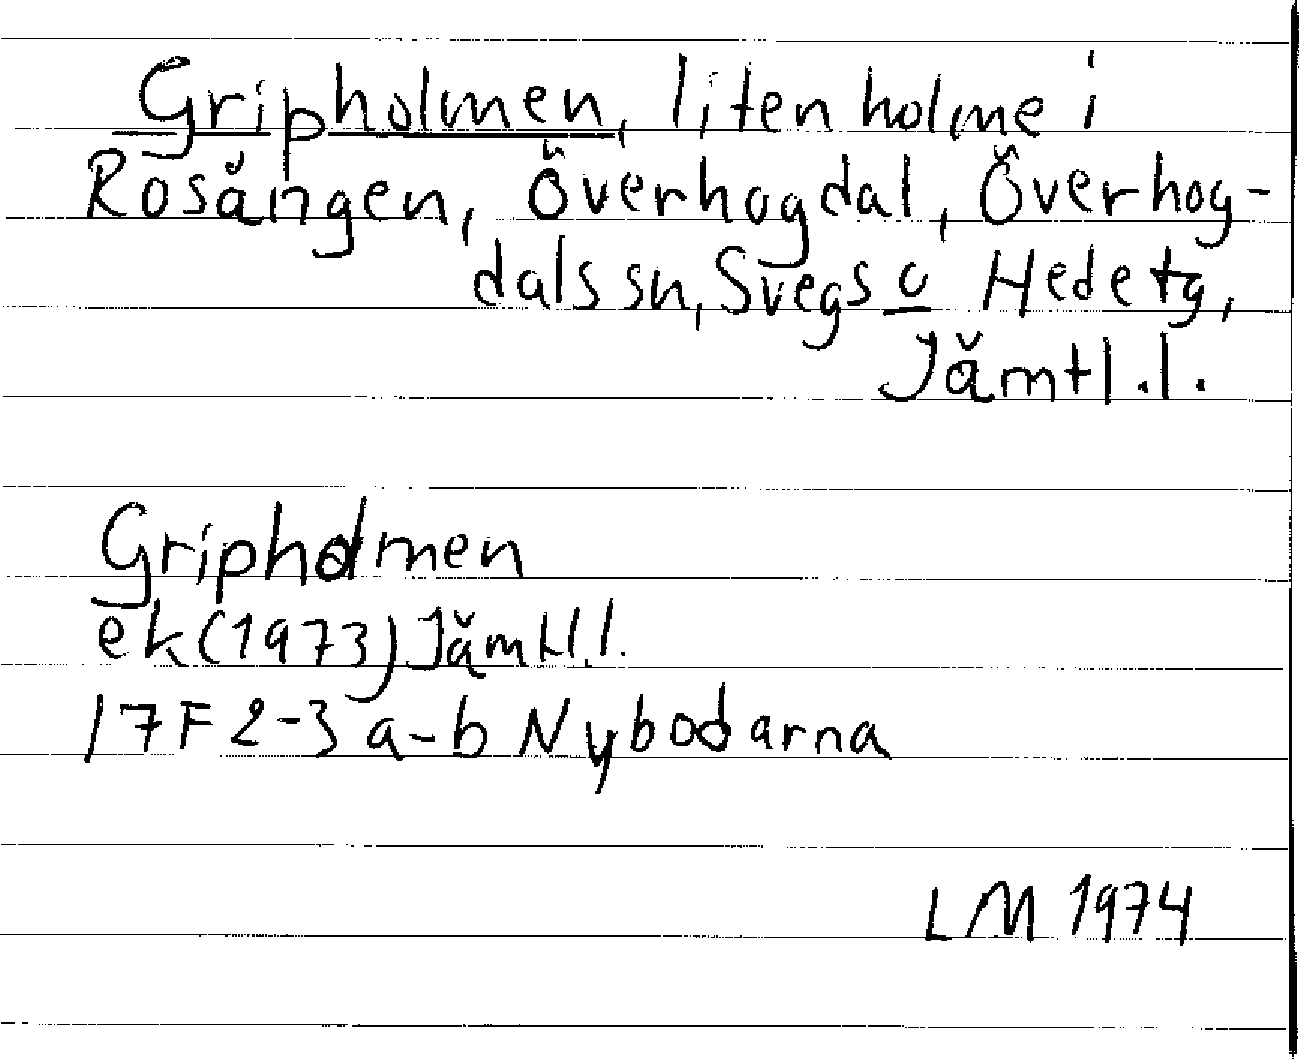 Gripholmen, liten holme i
Rosängen, Överhogdal, Överhog-
dals sn, Svegs o Hede tg,
Jämtl.l.
Gripholmen
ek (1973) Jämtl.l.
17F 2-3 a-b Nybodarna
LM 1974